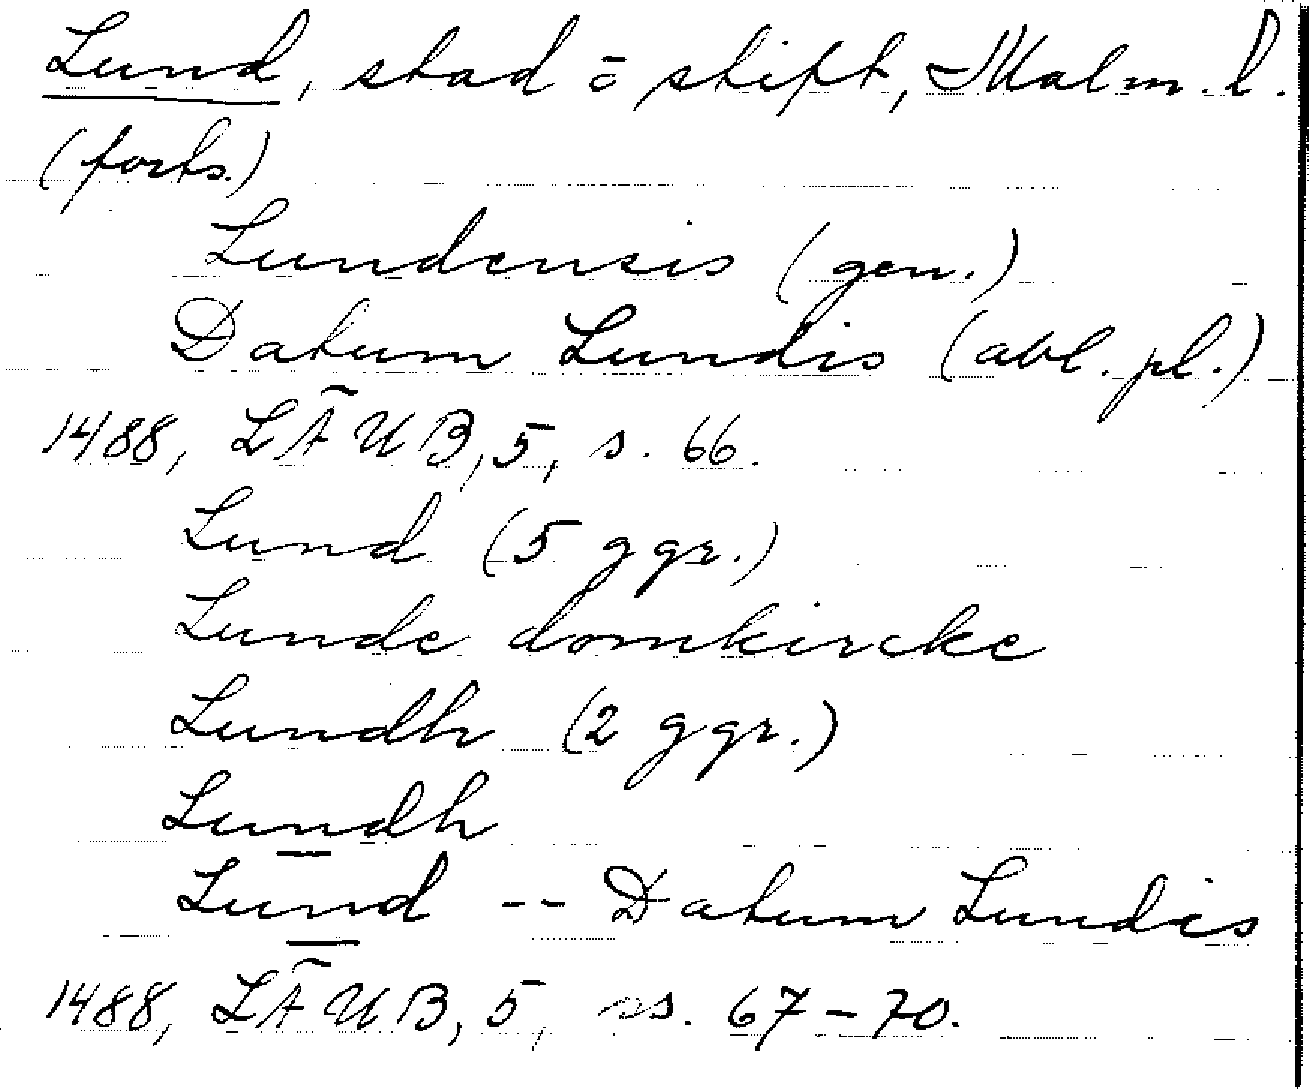 Lund, stad o. stift, Malm. l.
(forts.)
Lundensis (gen.)
Datum Lundis (abl. pl.)
1488, LÄUB, 5, s. 66.
Lund (5 ggr.)
Lunde domkircke
Lundh (2 ggr.)
Lundh
Lund -- Datum Lundis
1488, LÄUB, 5, ss. 67-70.